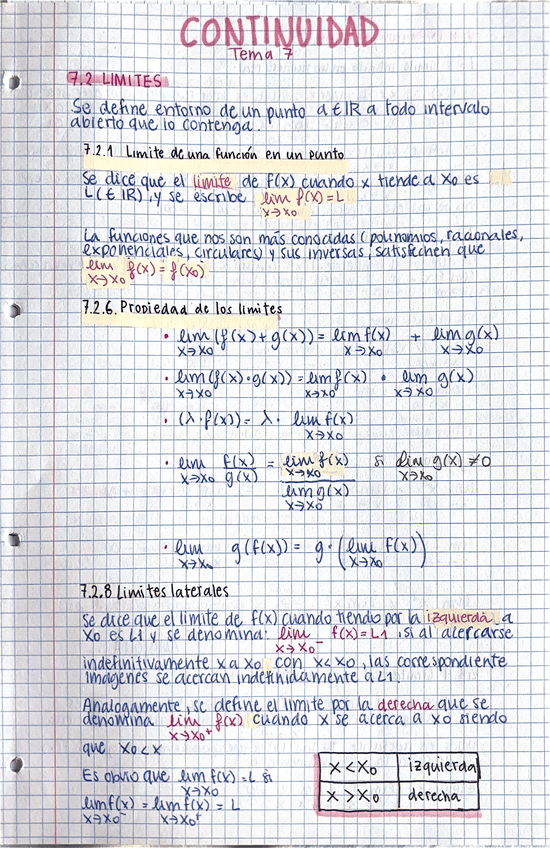 CONTINUIDAD
Tema 7
7.2 LIMITES
Se define entorno de un punto a ∈ IR a todo intervalo
abierto que lo contenga.
7.2.1 Limite de una función en un punto
Se dice que el limite de f(x) cuando x tiende a x0 es
L (∈ IR), y se escribe lim x→x0 f(x) = L
La funciones que nos son más conocidas (polinomios, racionales,
exponenciales, circulares) y sus inversas, satisfechen que
lim x→x0 f(x) = f(x0)
7.2.6. Propiedad de los limites
• lim x→x0 (f(x) + g(x)) = lim x→x0 f(x) + lim x→x0 g(x)
• lim x→x0 (f(x) · g(x)) = lim x→x0 f(x) · lim x→x0 g(x)
• (λ · f(x)) = λ · lim x→x0 f(x)
• lim x→x0 f(x)/g(x) = lim x→x0 f(x) / lim x→x0 g(x) si lim x→x0 g(x) ≠ 0
• lim x→x0 g(f(x)) = g · (lim x→x0 f(x))
7.2.8 Limites laterales
Se dice que el limite de f(x) cuando tiendo por la izquierda a
x0 es L1 y se denomina: lim x→x0⁻ f(x) = L1, si al acercarse
indefinitivamente x a x0 con x < x0, las correspondiente
imágenes se acercan indefinidamente a L1.
Analogamente, se define el limite por la derecha que se
denomina lim x→x0⁺ f(x) cuando x se acerca a x0 siendo
que x0 < x
Es obvio que lim x→x0 f(x) = L si
lim x→x0⁻ f(x) = lim x→x0⁺ f(x) = L
x < x0 izquierda
x > x0 derecha